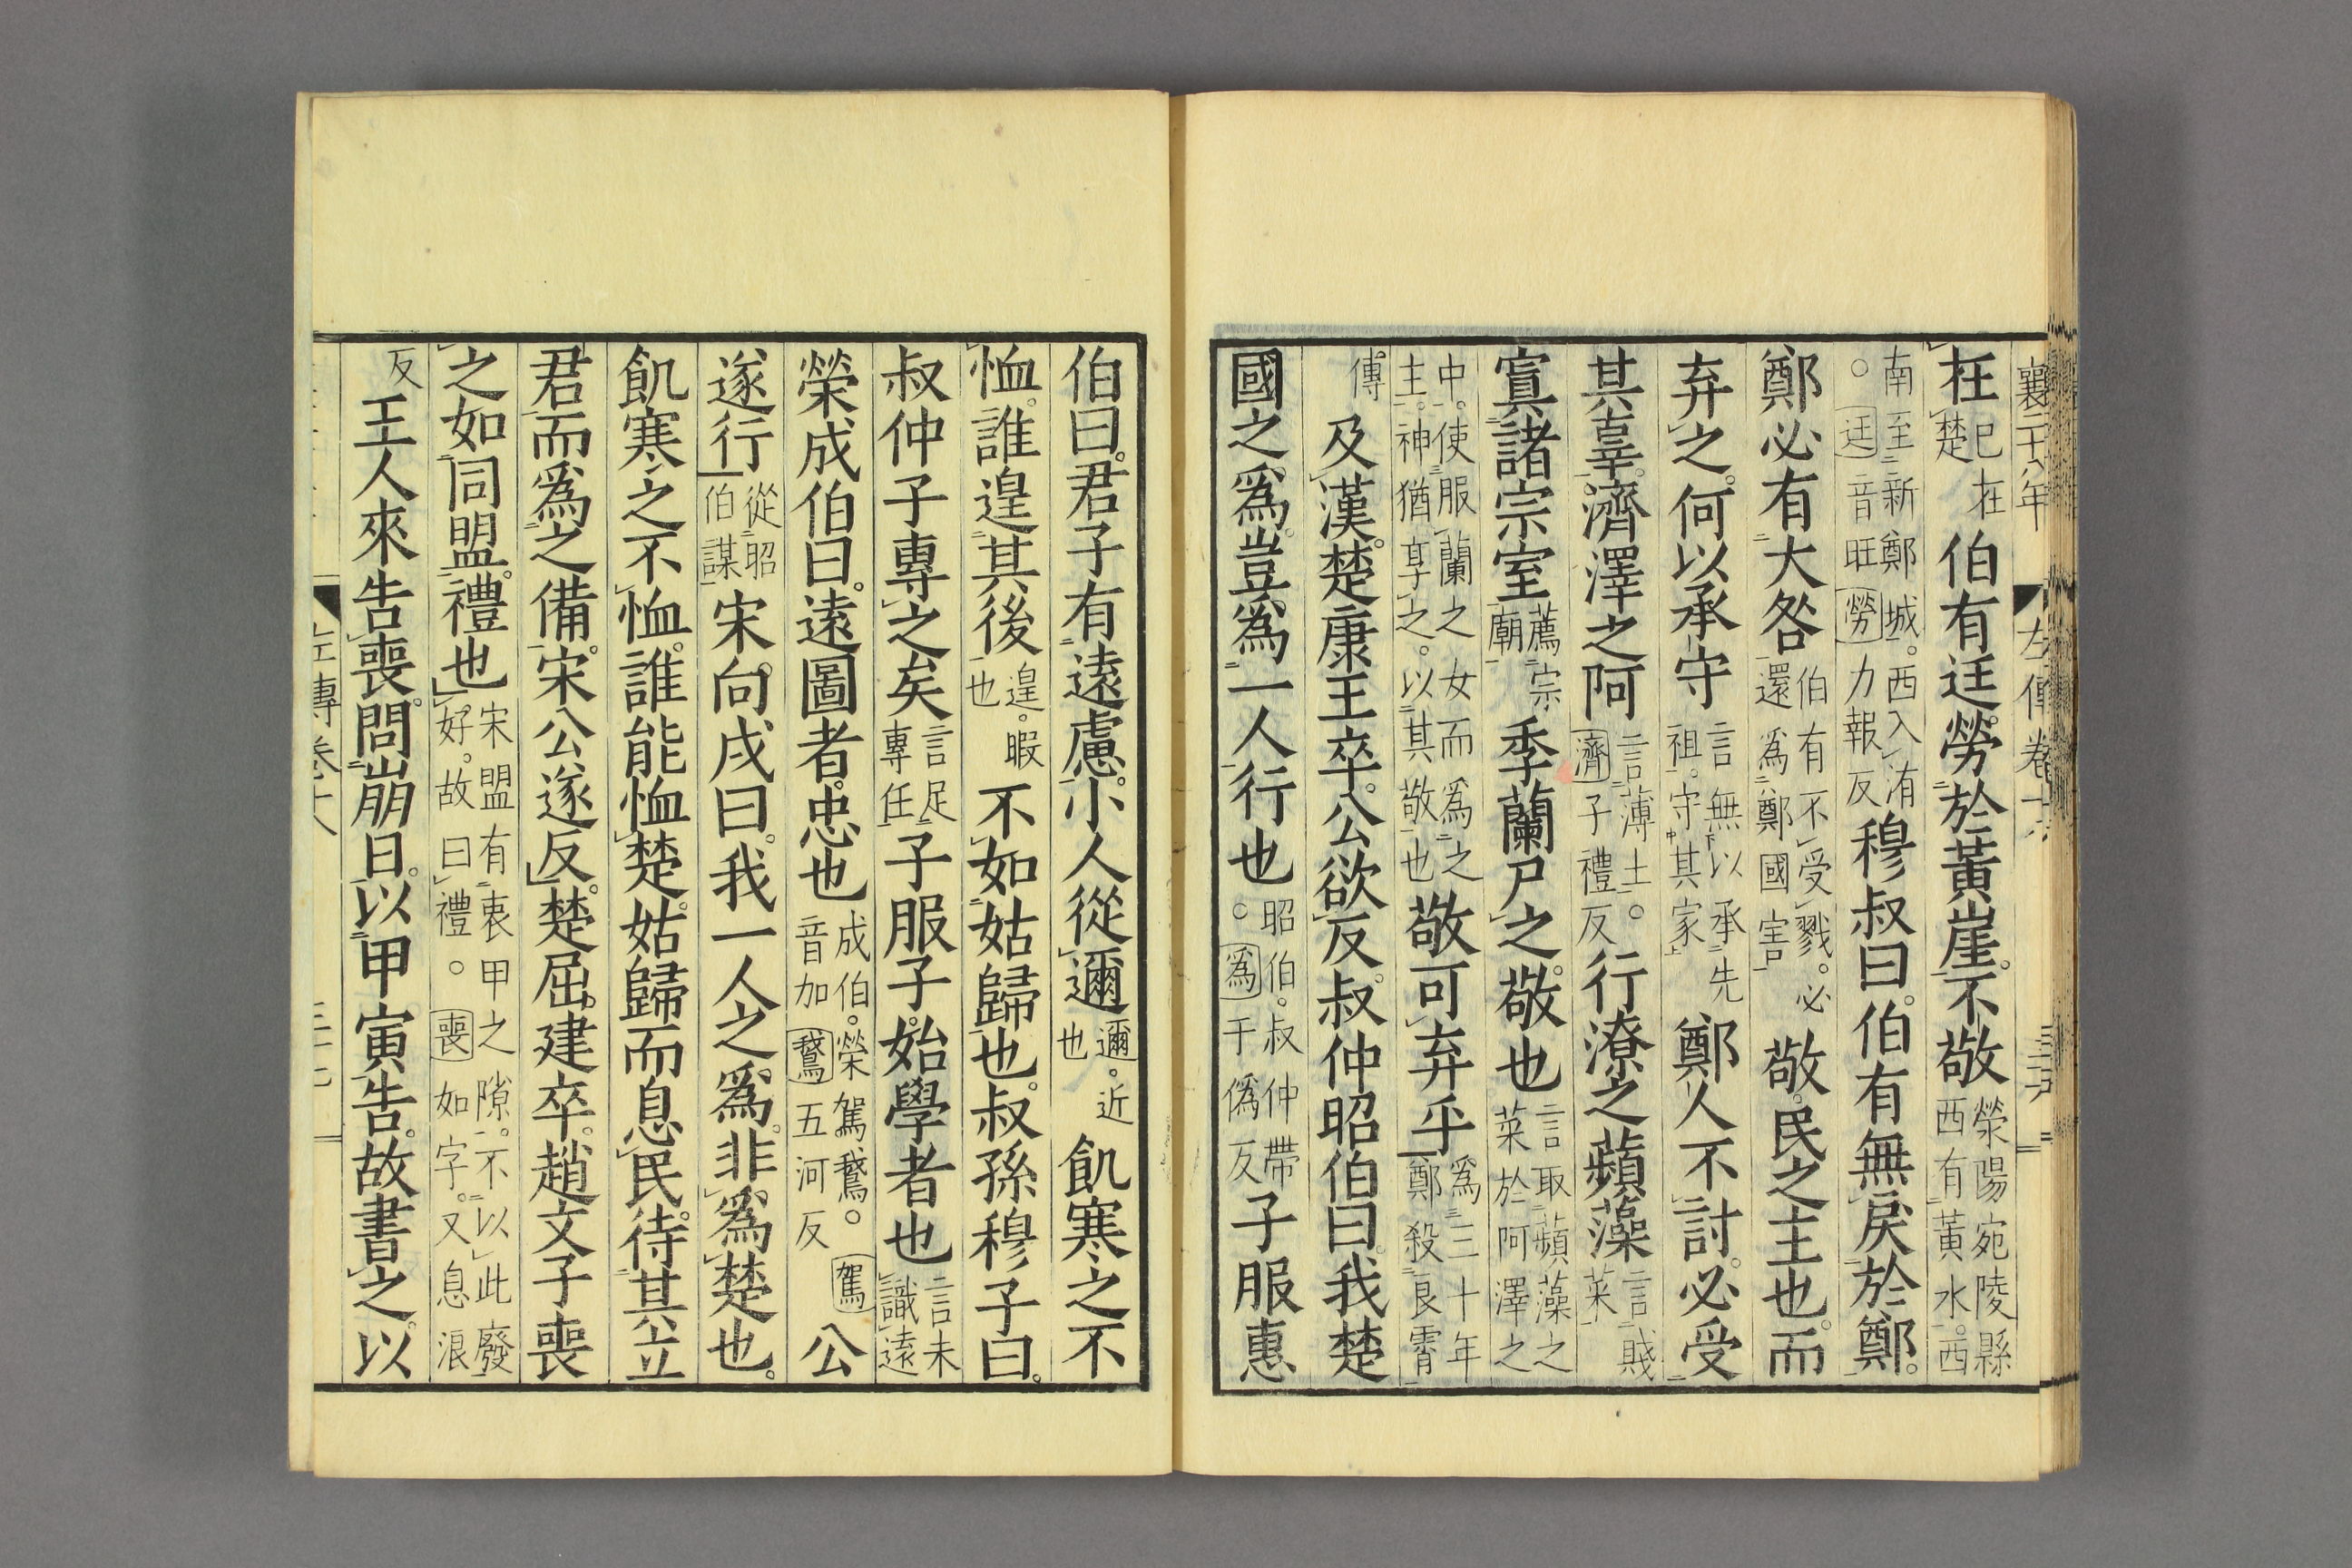 襄二十八年
左傳卷十八
在已在楚伯有廷勞於黃崖不敬滎陽宛陵縣西有黃水西
南至新鄭城西入洧○廷音旺勞力報反穆叔曰伯有無戾於鄭
鄭必有大咎伯有不受戮必還爲鄭國害敬民之主也而
弃之何以承守言無以承先祖守其家鄭人不討必受
其辜濟澤之阿言薄土○濟子禮反行潦之蘋藻言賤菜
寘諸宗室薦宗廟季蘭尸之敬也言取蘋藻之菜於阿澤之
中使服蘭之女而爲之主神猶享之以其敬也敬可弃乎爲三十年鄭殺良霄
傳及漢楚康王卒公欲反叔仲昭伯曰我楚
國之爲豈爲一人行也昭伯叔仲帶○爲于僞反子服惠
伯曰君子有遠慮小人從邇邇近也飢寒之不
恤誰遑其後遑暇也不如姑歸也叔孫穆子曰
叔仲子專之矣言足專任子服子始學者也言未識遠
榮成伯曰遠圖者忠也成伯榮駕鵞○駕音加鵞五河反公
遂行從昭伯謀宋向戌曰我一人之爲非爲楚也
飢寒之不恤誰能恤楚姑歸而息民待其立
君而爲之備宋公遂反楚屈建卒趙文子喪
之如同盟禮也宋盟有衷甲之隙不以此廢好故曰禮○喪如字又息浪
反王人來告喪問崩日以甲寅告故書之以
左傳卷十八